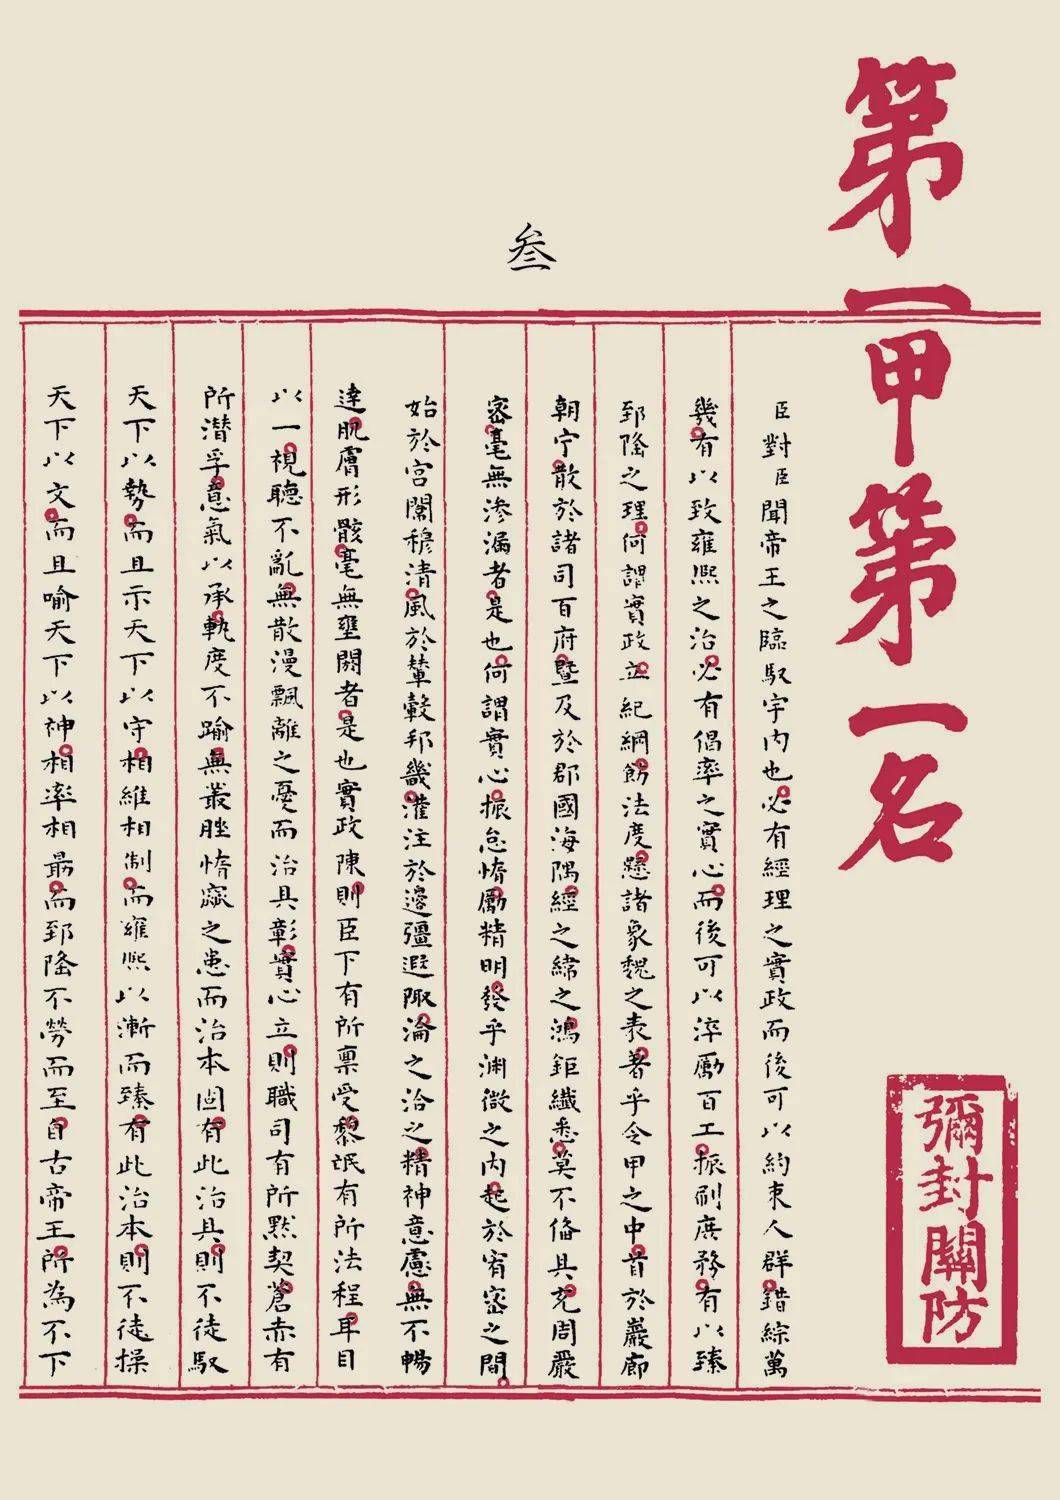 第一甲第一名
彌封關防
叁
臣對臣聞帝王之臨馭宇内也必有經理之實政而後可以約束人群錯綜萬
幾有以致雍熙之治必有倡率之實心而後可以淬勵百工振刷庶務有以臻
郅隆之理何謂實政立紀綱飭法度懸諸象魏之表著乎令甲之中首於巖廊
朝宁散於諸司百府暨及於郡國海隅經之緯之鴻鉅纖悉莫不俻具充周嚴
密毫無渗漏者是也何謂實心振怠惰勵精明發乎渊微之内起於宥密之間
始於宫闈穆清風於輦轂邦畿灌注於邊疆遐陬淪之洽之精神意慮無不暢
達肌膚形骸毫無壅閼者是也實政陳則臣下有所禀受黎氓有所法程耳目
以一視聽不亂無散漫飄離之憂而治具彰實心立則職司有所默契蒼赤有
所潜孚意氣以承軌度不踰無叢脞惰窳之患而治本固有此治具則不徒馭
天下以勢而且示天下以守相維相制而雍熙以漸而臻有此治本則不徒操
天下以文而且喻天下以神相率相最而郅隆不勞而至自古帝王所為不下